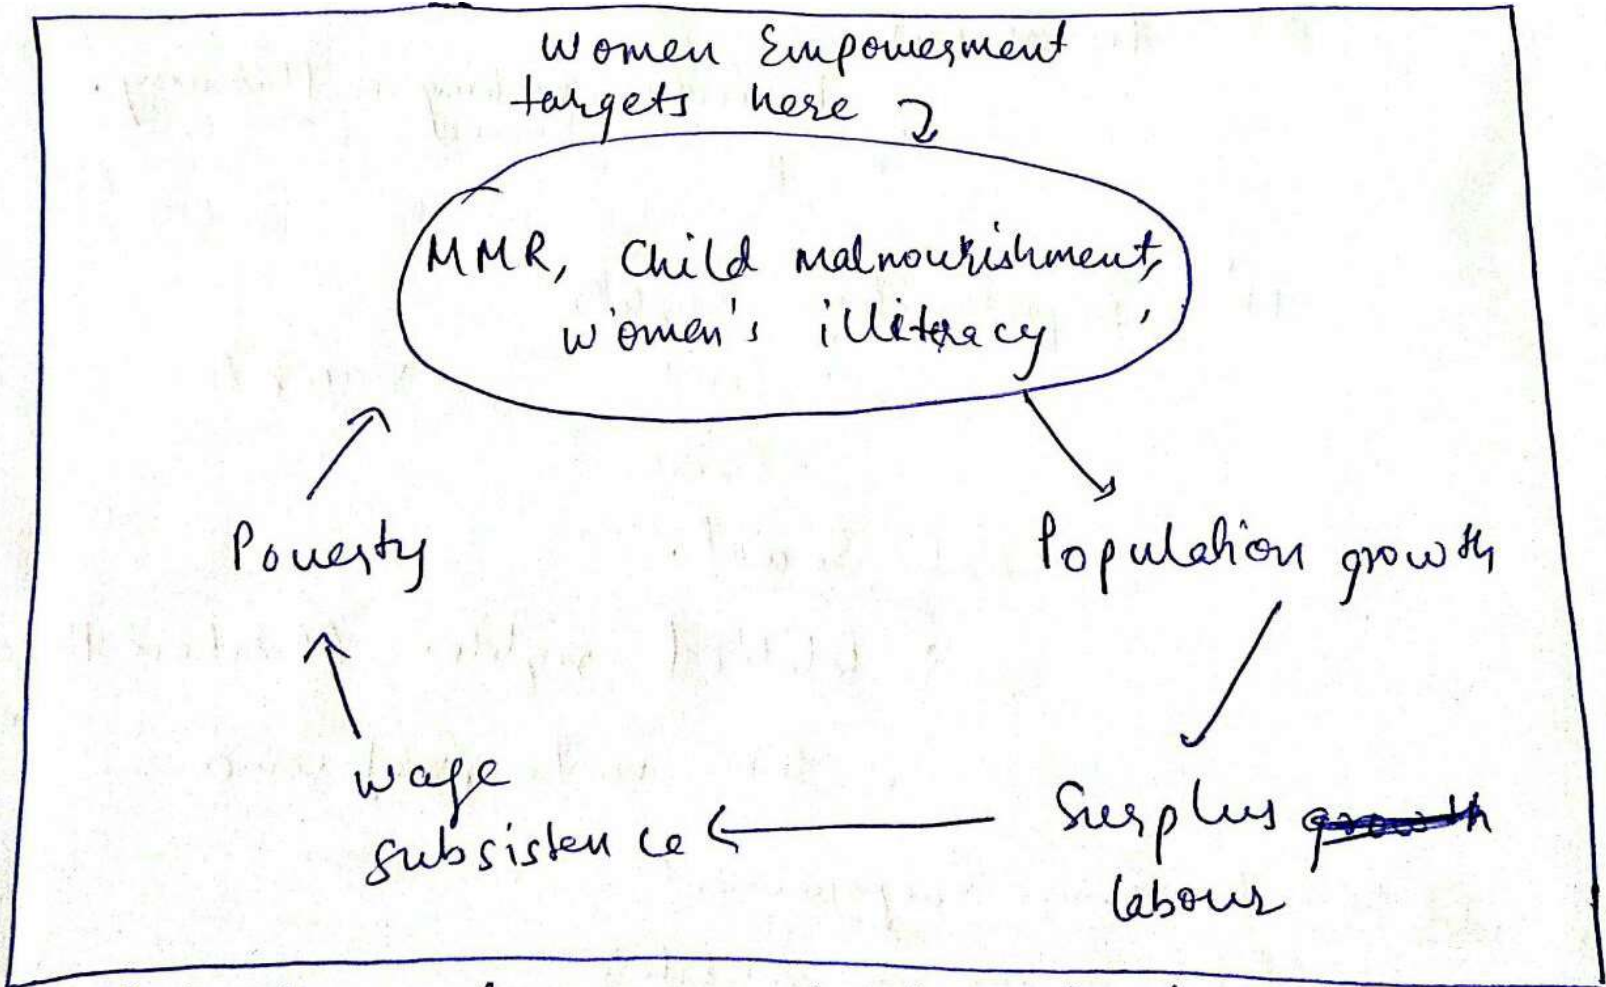 Women Empowerment
targets here
MMR, Child malnourishment,
women's illiteracy
Poverty
Population growth
wage
subsistence
Surplus growth
labour